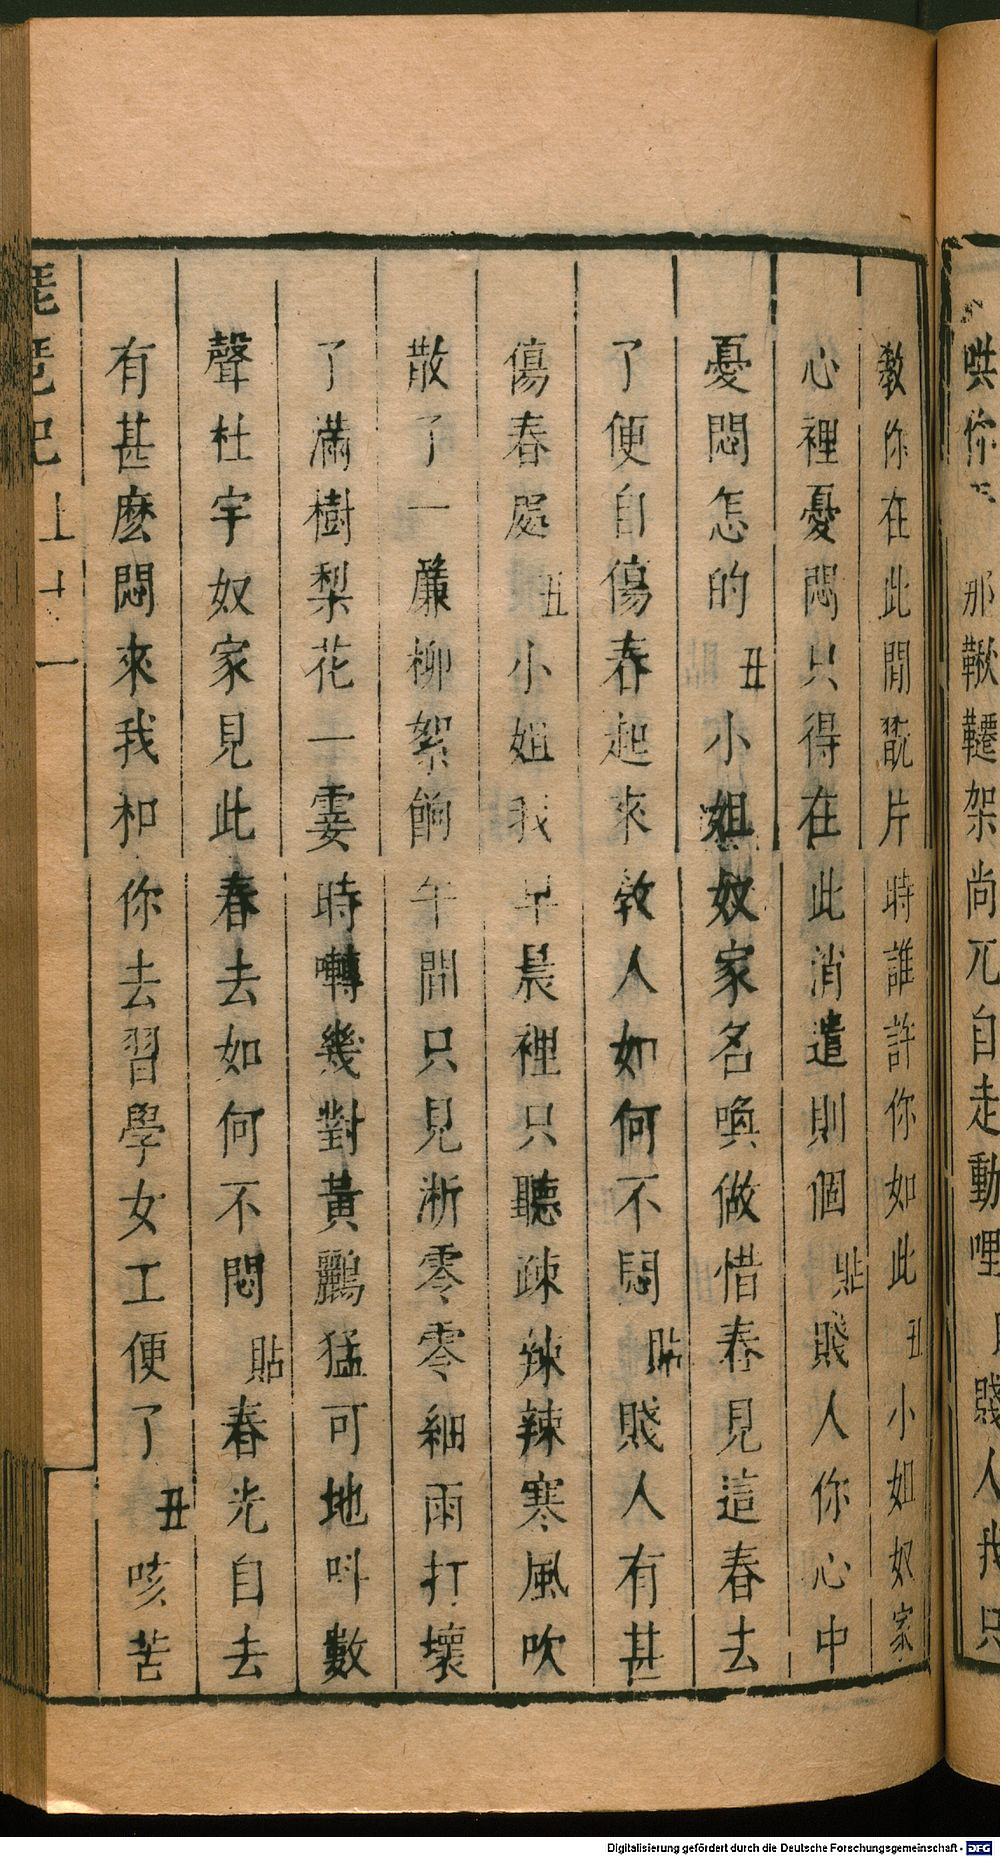 哄你 那鞦韆架尚兀自走動哩 賤人我只
教你在此閒翫片時誰許你如此丑小姐奴家
心裡憂悶只得在此消遣則個貼賤人你心中
憂悶怎的丑小姐奴家名喚做惜春見這春去
了便自傷春起來教人如何不悶貼賤人有甚
傷春處丑小姐我早晨裡只聽疎辣辣寒風吹
散了一簾柳絮餉午間只見淅零零細雨打壞
了滿樹梨花一霎時囀幾對黃鸝猛可地呌數
聲杜宇奴家見此春去如何不悶貼春光自去
有甚麽悶來我和你去習學女工便了丑咳苦
琵琶記 上 十一
Digitalisierung gefördert durch die Deutsche Forschungsgemeinschaft - DFG